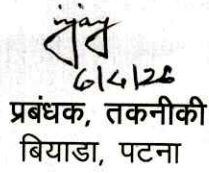 6/4/26
प्रबंधक, तकनीकी
बियाडा, पटना